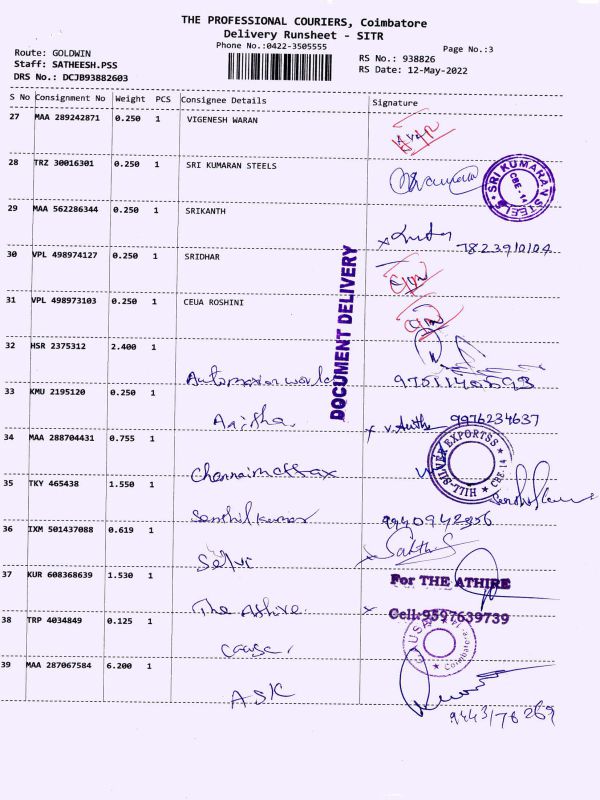 THE PROFESSIONAL COURIERS, Coimbatore
Delivery Runsheet - SITR
Phone No.:0422-3505555
Page No.:3
Route: GOLDWIN
Staff: SATHEESH.PSS
DRS No.: DCJB93882603
RS No.: 938826
RS Date: 12-May-2022
S No Consignment No Weight PCS Consignee Details Signature
27 MAA 289242871 0.250 1 VIGENESH WARAN
28 TRZ 30016301 0.250 1 SRI KUMARAN STEELS
SRI KUMARAN STEELS
CBE-14
29 MAA 562286344 0.250 1 SRIKANTH
7823910104
30 VPL 498974127 0.250 1 SRIDHAR
31 VPL 498973103 0.250 1 CEUA ROSHINI
DOCUMENT DELIVERY
32 HSR 2375312 2.400 1
33 KMU 2195120 0.250 1
9976234637
34 MAA 288704431 0.755 1
EXPORTSS CBE-14
35 TKY 465438 1.550 1 Senthilkumar
36 IXM 501437088 0.619 1 Selvi
37 KUR 608368639 1.530 1 The Athire
For THE ATHIRE
Cell:9597639739
38 TRP 4034849 0.125 1 Cause
Coimbatore
39 MAA 287067584 6.200 1 ASK